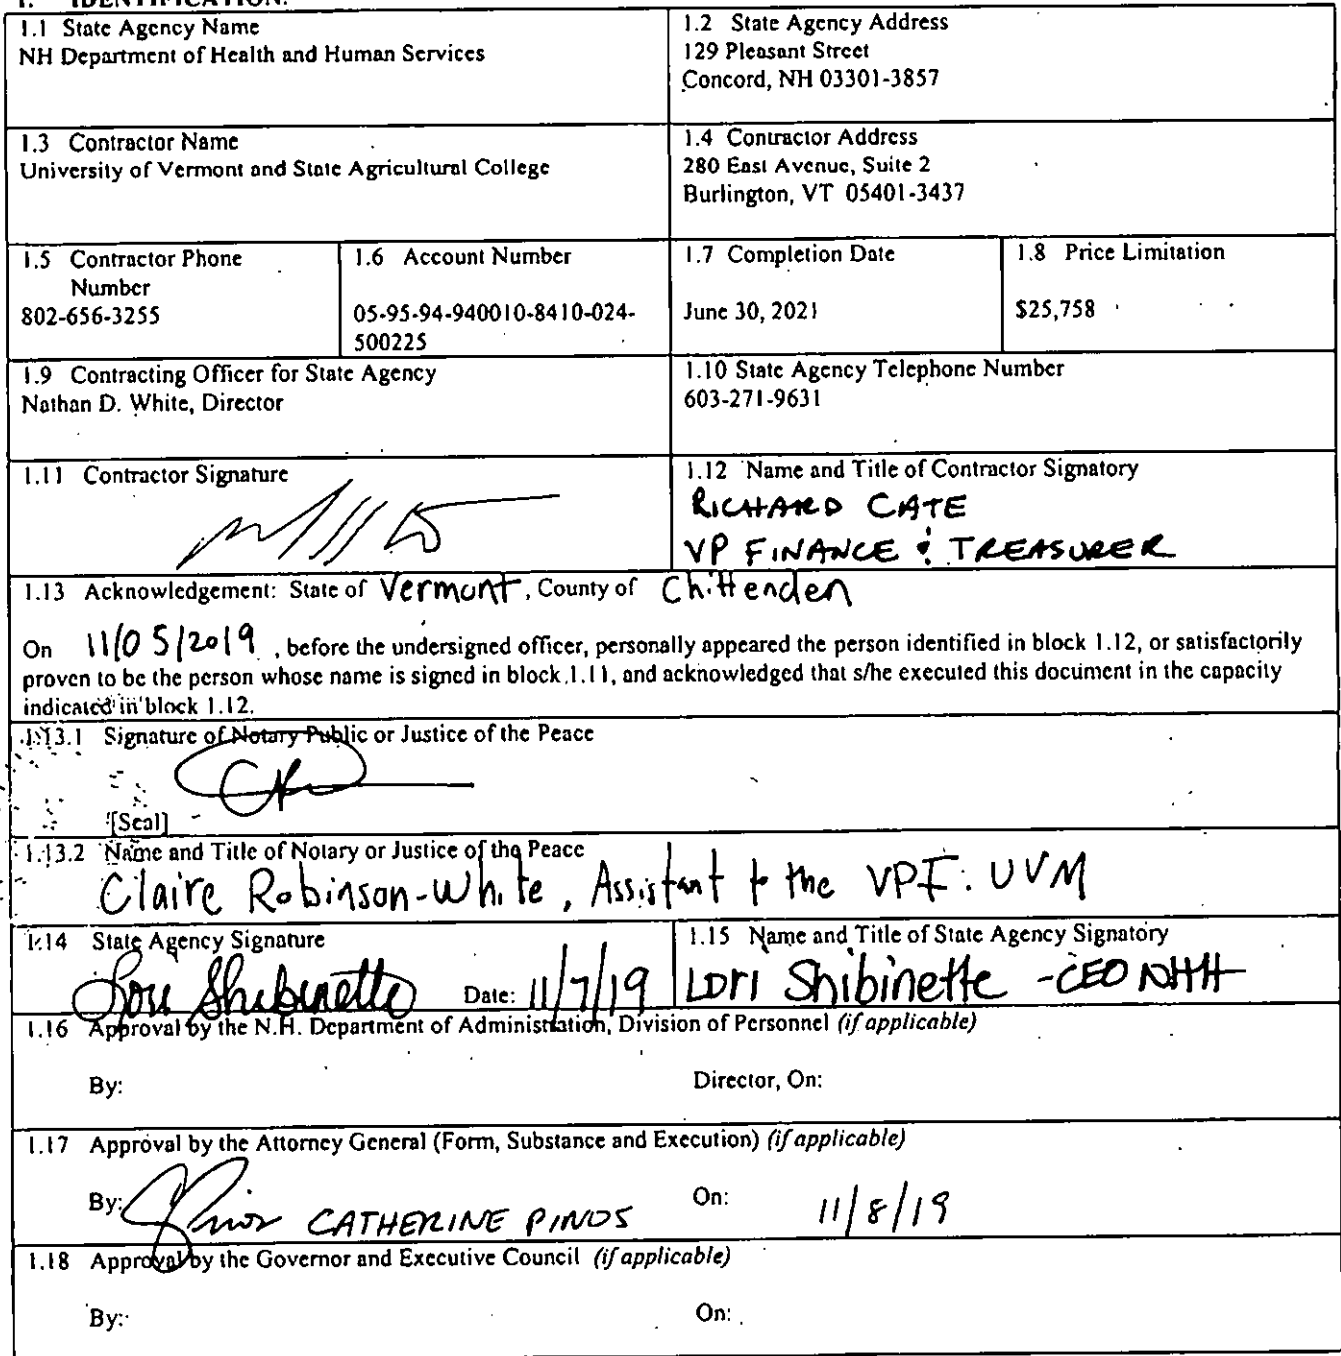 1. IDENTIFICATION.
1.1 State Agency Name
NH Department of Health and Human Services
1.2 State Agency Address
129 Pleasant Street
Concord, NH 03301-3857
1.3 Contractor Name
University of Vermont and State Agricultural College
1.4 Contractor Address
280 East Avenue, Suite 2
Burlington, VT 05401-3437
1.5 Contractor Phone
Number
802-656-3255
1.6 Account Number
05-95-94-940010-8410-024-
500225
1.7 Completion Date
June 30, 2021
1.8 Price Limitation
$25,758
1.9 Contracting Officer for State Agency
Nathan D. White, Director
1.10 State Agency Telephone Number
603-271-9631
1.11 Contractor Signature
1.12 Name and Title of Contractor Signatory
RICHARD CATE
VP FINANCE & TREASURER
1.13 Acknowledgement: State of Vermont, County of Chittenden
On 11/05/2019, before the undersigned officer, personally appeared the person identified in block 1.12, or satisfactorily
proven to be the person whose name is signed in block 1.11, and acknowledged that s/he executed this document in the capacity
indicated in block 1.12.
1.13.1 Signature of Notary Public or Justice of the Peace
[Seal]
1.13.2 Name and Title of Notary or Justice of the Peace
Claire Robinson-White, Assistant to the VPF. UVM
1.14 State Agency Signature
Lori Shibinette Date: 11/7/19
1.15 Name and Title of State Agency Signatory
LORI Shibinette -CEO NHH
1.16 Approval by the N.H. Department of Administration, Division of Personnel (if applicable)
By: Director, On:
1.17 Approval by the Attorney General (Form, Substance and Execution) (if applicable)
By: CATHERINE PINOS On: 11/8/19
1.18 Approval by the Governor and Executive Council (if applicable)
By: On: